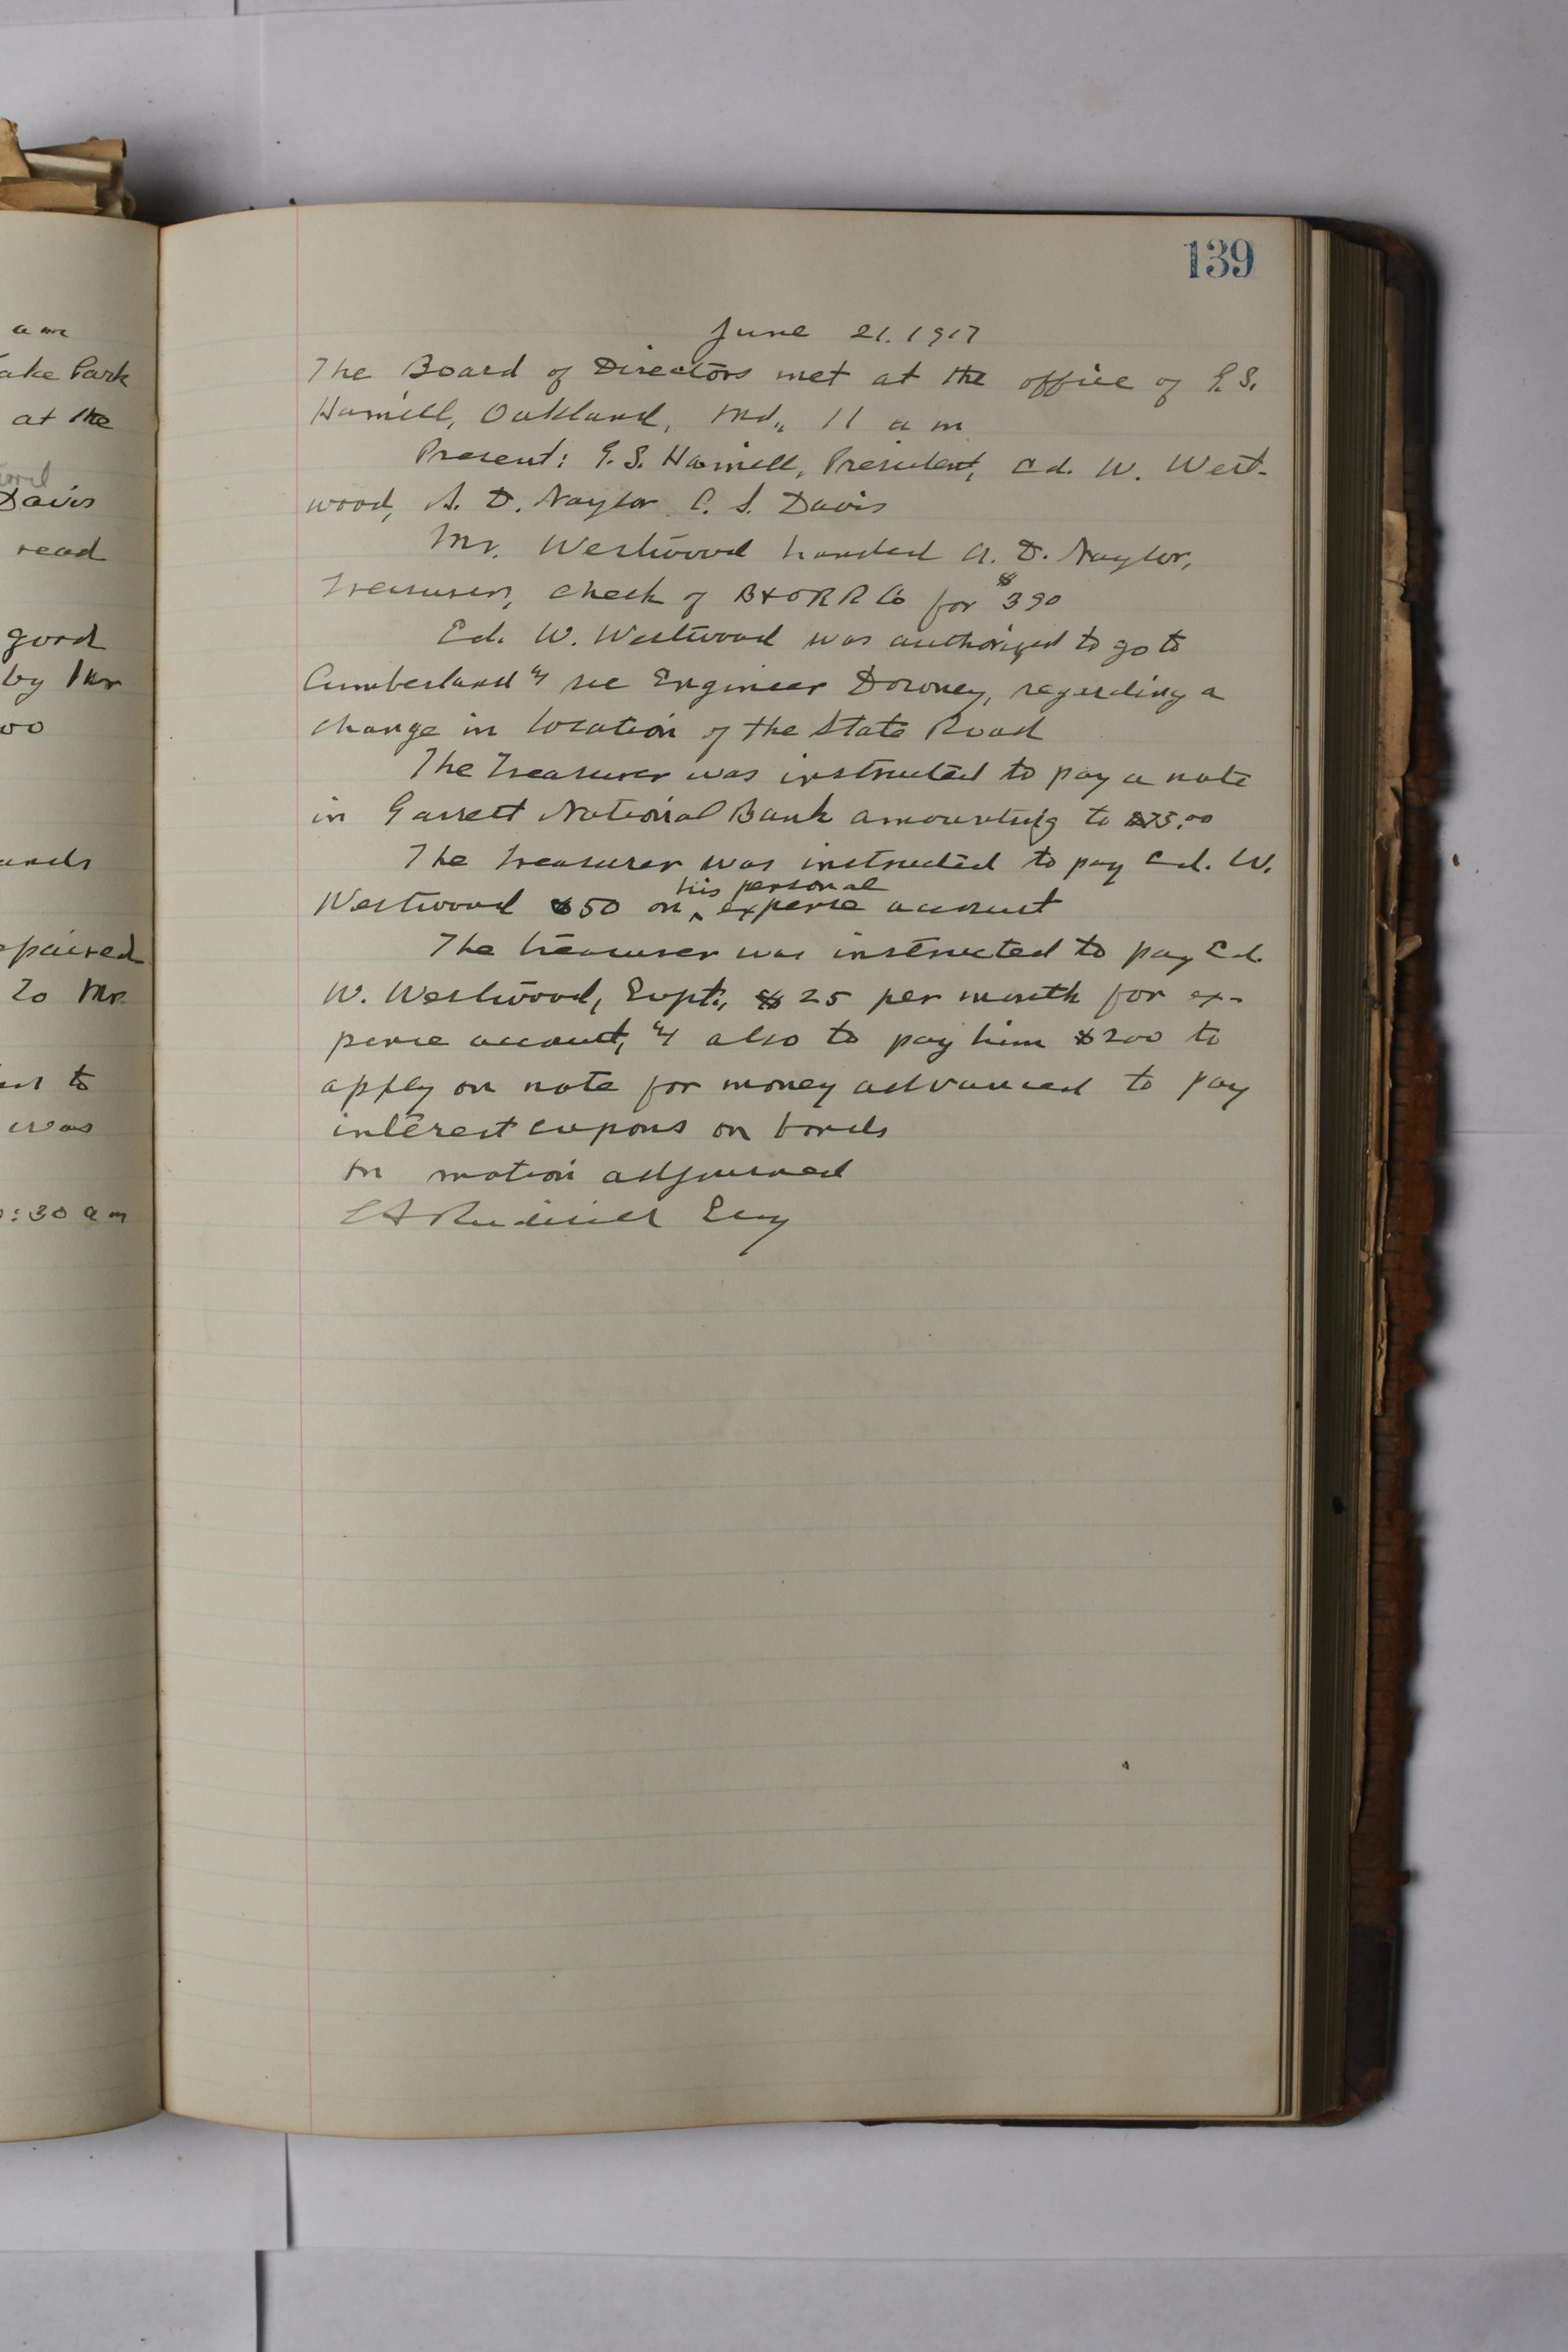 139
June 21. 1917
The Board of Directors met at the office of G. S.
Hamill, Oakland, Md., 11 a m
Present: G. S. Hamill, President, Ed. W. West-
wood, A. D. Naylor C. S. Davis
Mr. Westwood handed A. D. Naylor,
Treasurer, check of B & O R R Co for $390
Ed. W. Westwood was authorized to go to
Cumberland & see Engineer Downey, regarding a
change in location of the State Road
The Treasurer was instructed to pay a note
in Garrett National Bank amounting to
The treasurer was instructed to pay Ed. W.
Westwood $50 on his personal expense account
The treasurer was instructed to pay Ed.
W. Westwood, Supt., $25 per month for ex-
pense account, & also to pay him $200 to
apply on note for money advanced to pay
interest cupons on bonds
On motion adjourned
Secy
a m
ake Park
at the
Davis
read
good
by Mr
00
ands
epaired
To Mr.
to
was
:30 a m